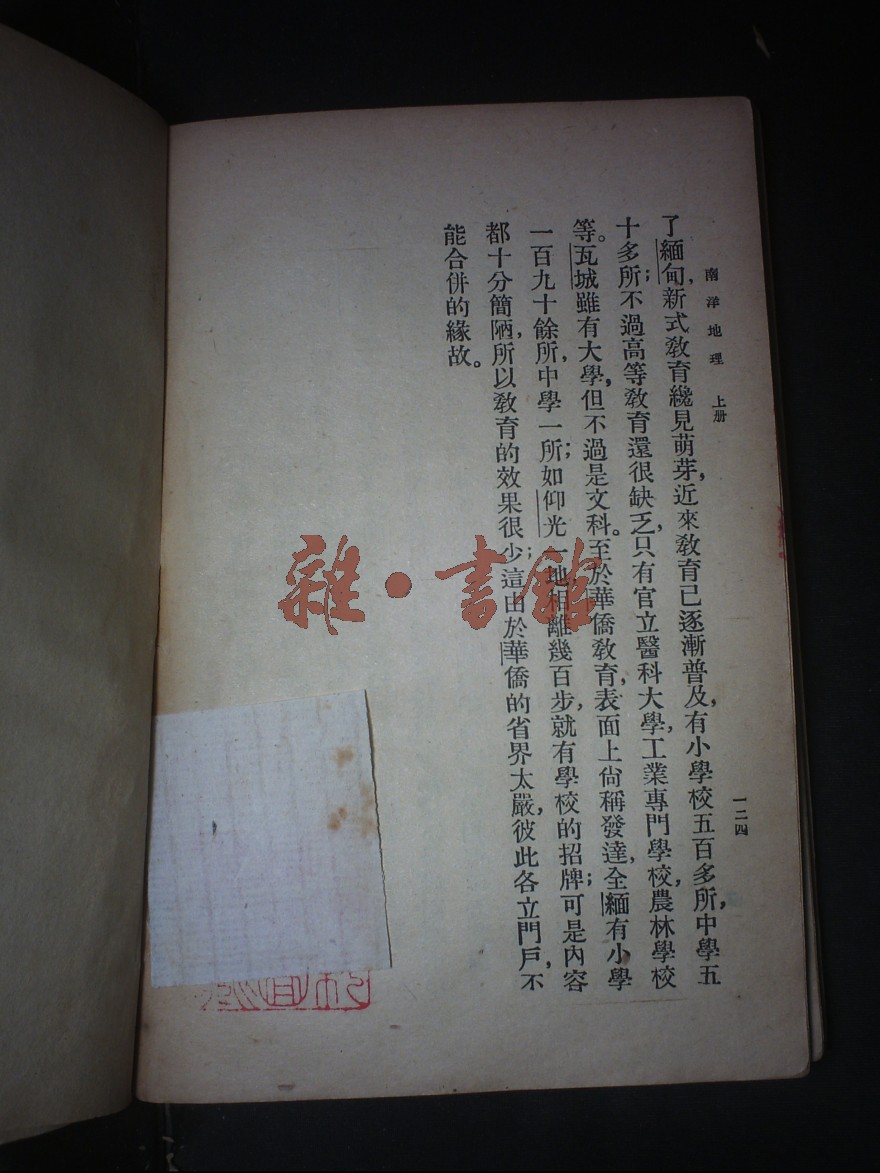 南洋地理　上册
一二四
了緬甸，新式教育纔見萌芽，近來教育已逐漸普及，有小學校五百多所，中學五
十多所；不過高等教育還很缺乏，只有官立醫科大學，工業專門學校，農林學校
等。瓦城雖有大學，但不過是文科。至於華僑教育，表面上尙稱發達，全緬有小學
一百九十餘所，中學一所；如仰光一地，相離幾百步，就有學校的招牌；可是內容
都十分簡陋，所以教育的效果很少；這由於華僑的省界太嚴，彼此各立門戶，不
能合併的緣故。
雜·書館